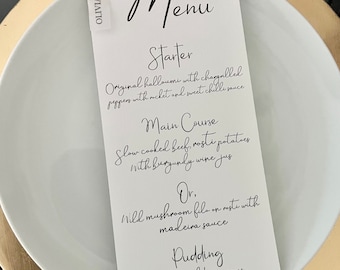 OLIVIA
Menu
Starter
Original halloumi with chargrilled
peppers with rocket and sweet chilli sauce
Main Course
Slow cooked beef, rosti potatoes
With burgundy wine jus
Or,
Wild mushroom filo on rosti with
madeira sauce
Pudding